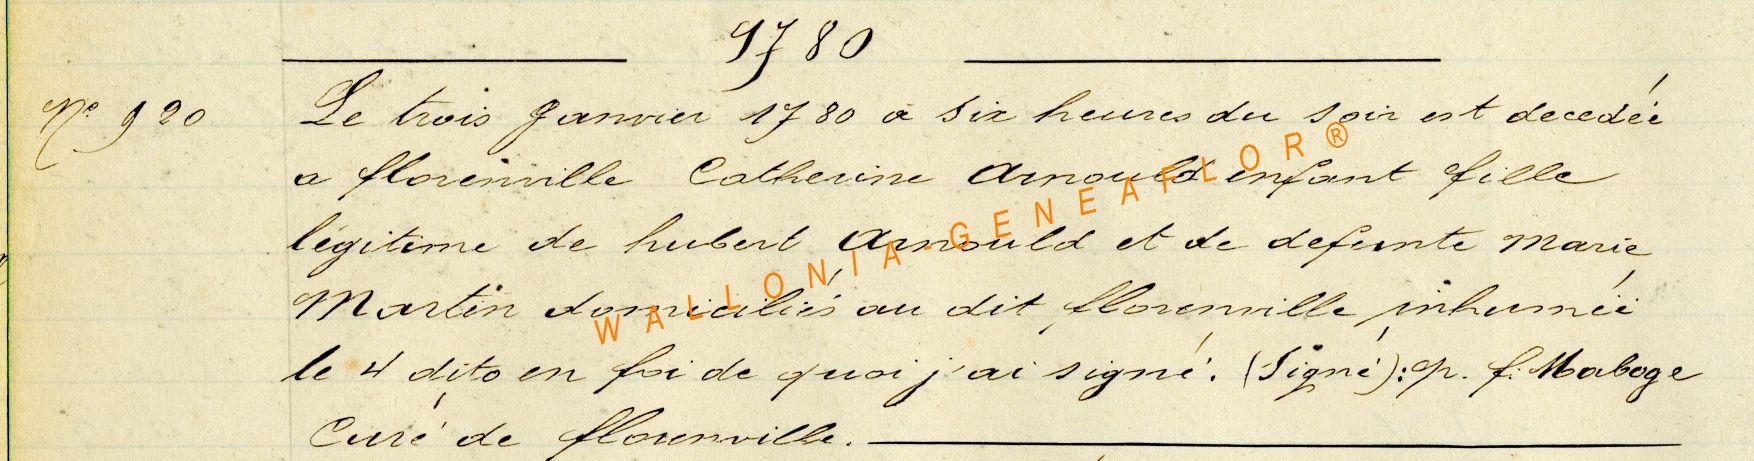 1780
Nº 920
Le trois Janvier 1780 à six heures du soir est decedée
a florenville Catherine Arnould enfant fille
légitime de hubert Arnould et de defunte Marie
Martin domiciliés au dit florenville inhumée
le 4 dito en foi de quoi j'ai signé. (Signé): p. f. Maboge
Curé de florenville.
WALLONIA-GENEAFLOR®